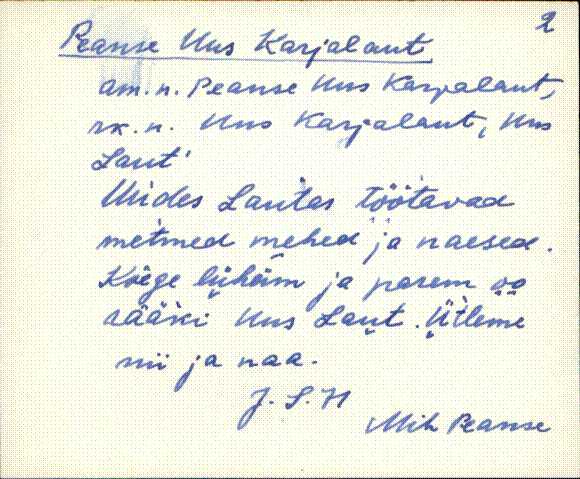 2
Peanse Uus Karjalaut
am. n. Peanse Uus Karjalaut,
rk. n. Uus Karjalaut, Uus
Laut'
Uides Lautas töötavad
metmed mehed ja naesed.
Kõege lüheim ja parem oo
rääki Uus Laut. Ütleme
nii ja naa.
J. S. H
Mih Peanse